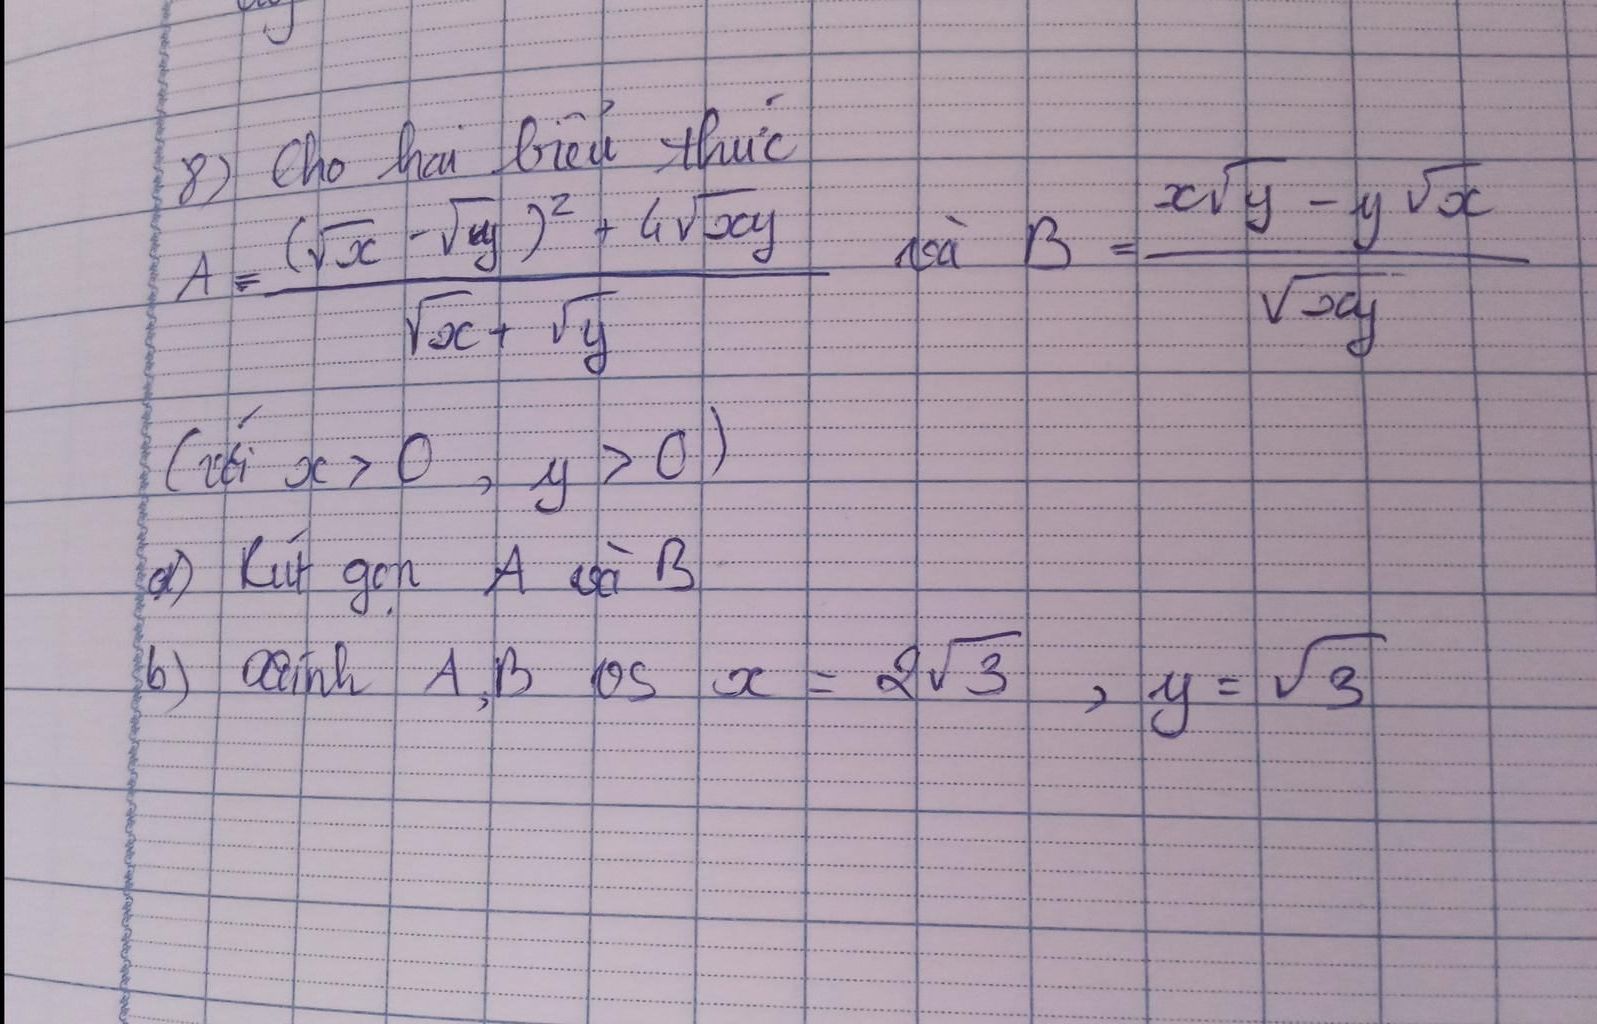 8) Cho hai biểu thức
A = \frac{(\sqrt{x} - \sqrt{y})^2 + 4\sqrt{xy}}{\sqrt{x} + \sqrt{y}} và B = \frac{x\sqrt{y} - y\sqrt{x}}{\sqrt{xy}}
(với x > 0 , y > 0)
a) Rút gọn A và B
b) Tính A,B x = 2\sqrt{3} , y = \sqrt{3}